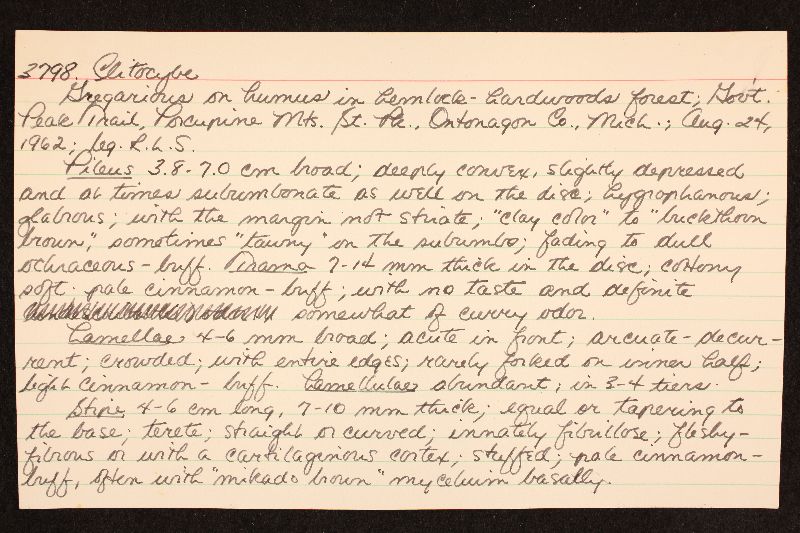 3798. Clitocybe
Gregarious on humus in hemlock-hardwoods forest, Gov't.
Peak Trail, Porcupine Mts. St. Pk., Ontonagon Co., Mich.; Aug. 24,
1962; leg. R.L.S.
Pileus 3.8-7.0 cm broad; deeply convex, slightly depressed
and at times subumbonate as well on the disc; hygrophanous;
glabrous; with the margin not striate; "clay color" to "buckthorn
brown", sometimes "tawny" on the subumbo; fading to dull
ochraceous-buff. Trama 7-14 mm thick in the disc; cottony
soft. pale cinnamon-buff; with no taste and definite
somewhat of curry odor.
Lamellae 4-6 mm broad; acute in front; arcuate-decur-
rent; crowded; with entire edges; rarely forked on inner half;
light cinnamon-buff. Lamellulae abundant; in 3-4 tiers.
Stipe 4-6 cm long, 7-10 mm thick; equal or tapering to
the base; terete; straight or curved; innately fibrillose; fleshy-
fibrous or with a cartilaginous cortex; stuffed; pale cinnamon-
buff, often with "mikado brown" mycelium basally.